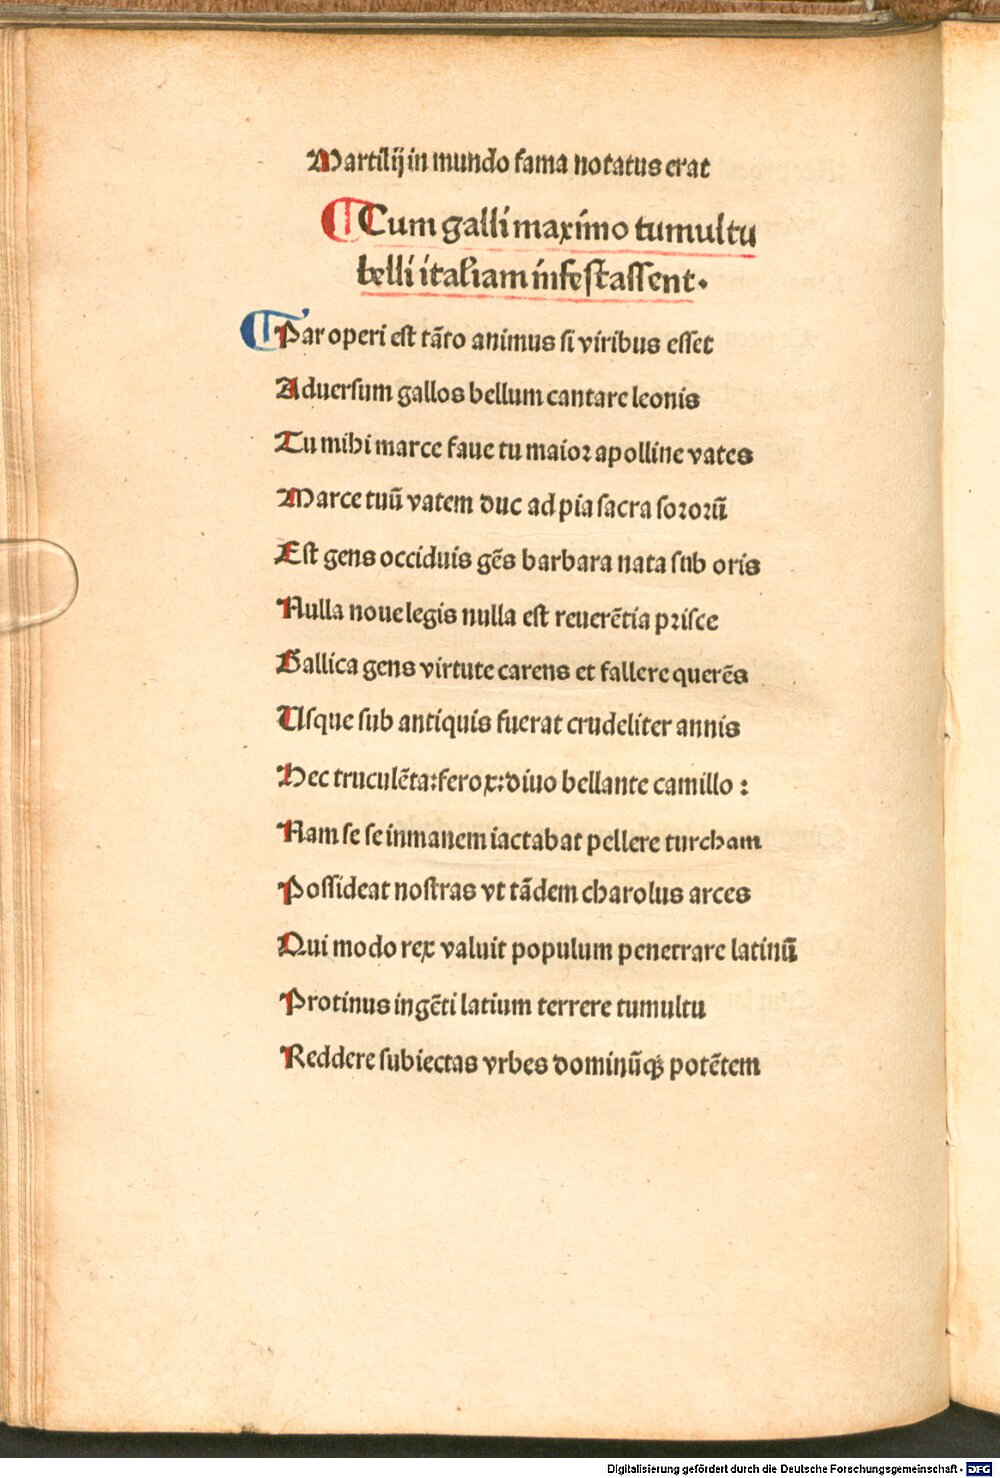 Martilij in mundo fama notatus erat
Cum galli maximo tumultu
belli italiam infestassent.
Par operi est tāto animus si viribus esset
Aduersum gallos bellum cantare leonis
Tu mihi marce faue tu maior apolline vates
Marce tuū vatem duc ad pia sacra sororū
Est gens occiduis gēs barbara nata sub oris
Nulla noue legis nulla est reuerētia prisce
Gallica gens virtute carens et fallere querēs
Usque sub antiquis fuerat crudeliter annis
Hec truculēta: ferox: diuo bellante camillo :
Nam se se inmanem iactabat pellere turcham
Possideat nostras vt tādem charolus arces
Qui modo rex valuit populum penetrare latinū
Protinus ingēti latium terrere tumultu
Reddere subiectas vrbes dominūqꝫ potētem
Digitalisierung gefördert durch die Deutsche Forschungsgemeinschaft - DFG